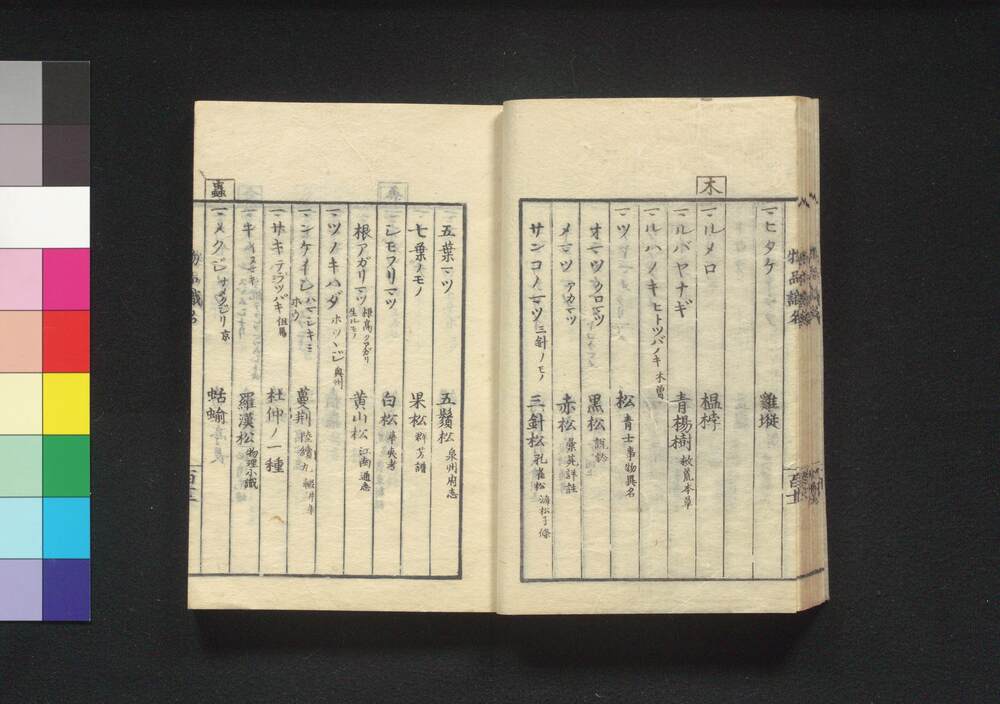 マヒタケ 雞㙡
木
マルメロ 榲桲
マルバヤナギ 青楊樹 救荒本草
マルハノキ ヒトツバノキ 木曽
マツ 松 青士 事物異名
オマツ クロマツ 黒松 訓詁
メマツ アカマツ 赤松 彙苑詳註
サンコノマツ 三針ノモノ 三針松 孔雀松 海松子條
五葉マツ 五鬚松 泉州府志
七葉ノモノ 果松 群芳譜
シモフリマツ 白松
根アガリマツ 根高クアガリ生ルモノ 黄山松 江南通志
マツノキハダ ホツツジ 奥州
マンケイシ ハマシキミ ホウ 蔓荊
マサキ テラツバキ 但馬 杜仲ノ一種
マキ イヌマキ 羅漢松 物理小識
蟲
マメクジ ナメクジリ 京 蛞蝓
物品識名